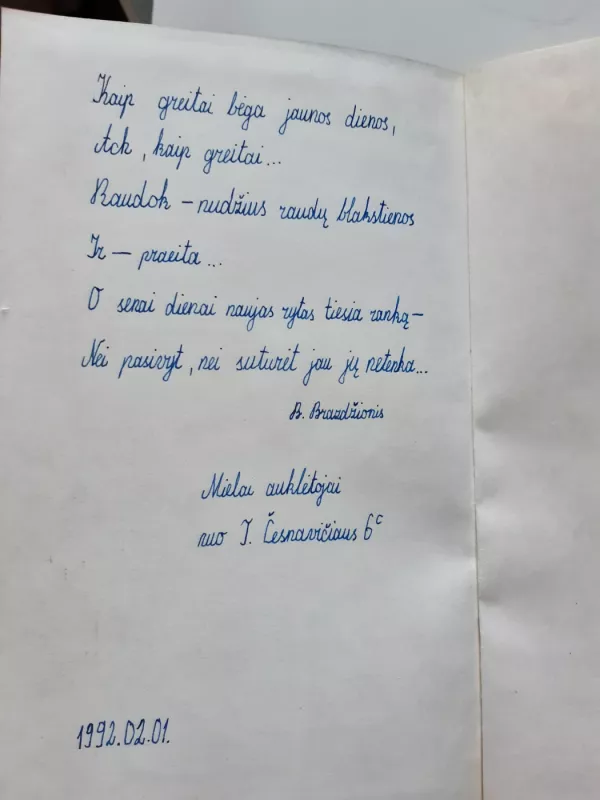 Kaip greitai bėga jaunos dienos,
Ack, kaip greitai...
Raudok – nudžius raudų blakstienos
Ir — praeita...
O senai dienai naujas rytas tiesia ranką –
Nei pasivyt, nei suturėt jau jų netenka...
B. Brazdžionis
Mielai auklėtojai
nuo I. Česnavičiaus 6ᶜ
1992.02.01.